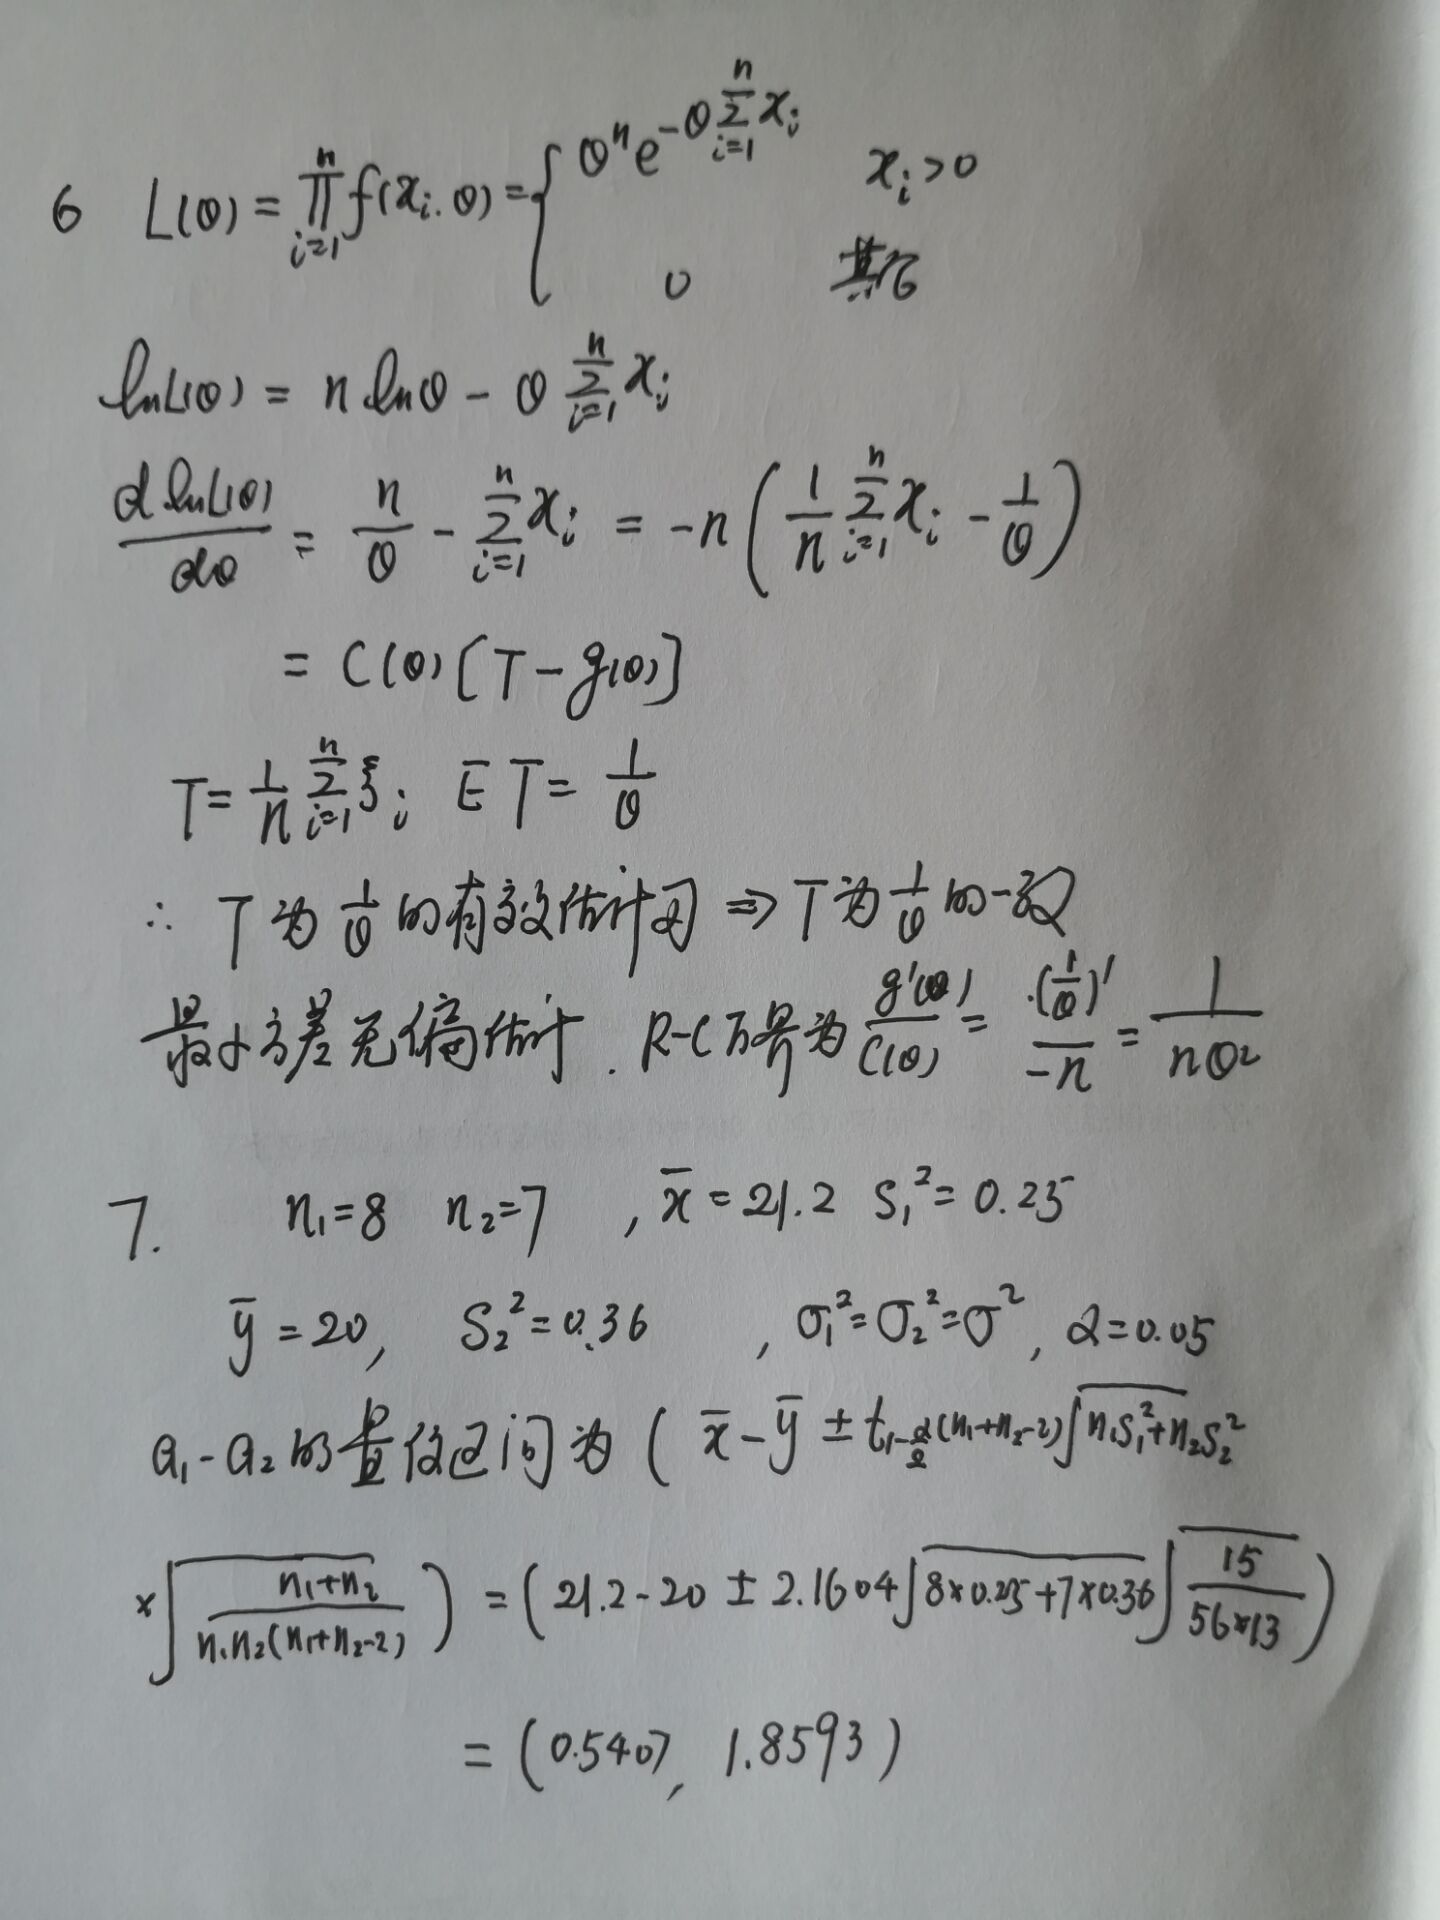 6 L(θ) = ∏_{i=1}^{n} f(x_i. θ) = { θ^n e^{-θ∑_{i=1}^{n} x_i} x_i>0
0 其它
lnL(θ) = n lnθ - θ ∑_{i=1}^{n} x_i
d lnL(θ)/dθ = n/θ - ∑_{i=1}^{n} x_i = -n( 1/n ∑_{i=1}^{n} x_i - 1/θ )
= C(θ)[T - g(θ)]
T = 1/n ∑_{i=1}^{n} ξ_i E T = 1/θ
∴ T 为 1/θ 的有效估计可 ⇒ T 为 1/θ 的一致
最小方差无偏估计. R-C下界为 g'(θ)/C(θ) = (1/θ)'/-n = 1/nθ²
7. n₁=8 n₂=7 , x̄ = 21.2 S₁² = 0.25
ȳ = 20, S₂² = 0.36 , σ₁² = σ₂² = σ², α = 0.05
a₁ - a₂ 的置信区间为 ( x̄ - ȳ ± t_{1-α/2}(n₁+n₂-2) √(n₁S₁²+n₂S₂²)
× √( n₁+n₂ / n₁n₂(n₁+n₂-2) ) ) = ( 21.2-20 ± 2.1604 √(8×0.25+7×0.36) √( 15 / 56×13 ) )
= ( 0.5407, 1.8593 )